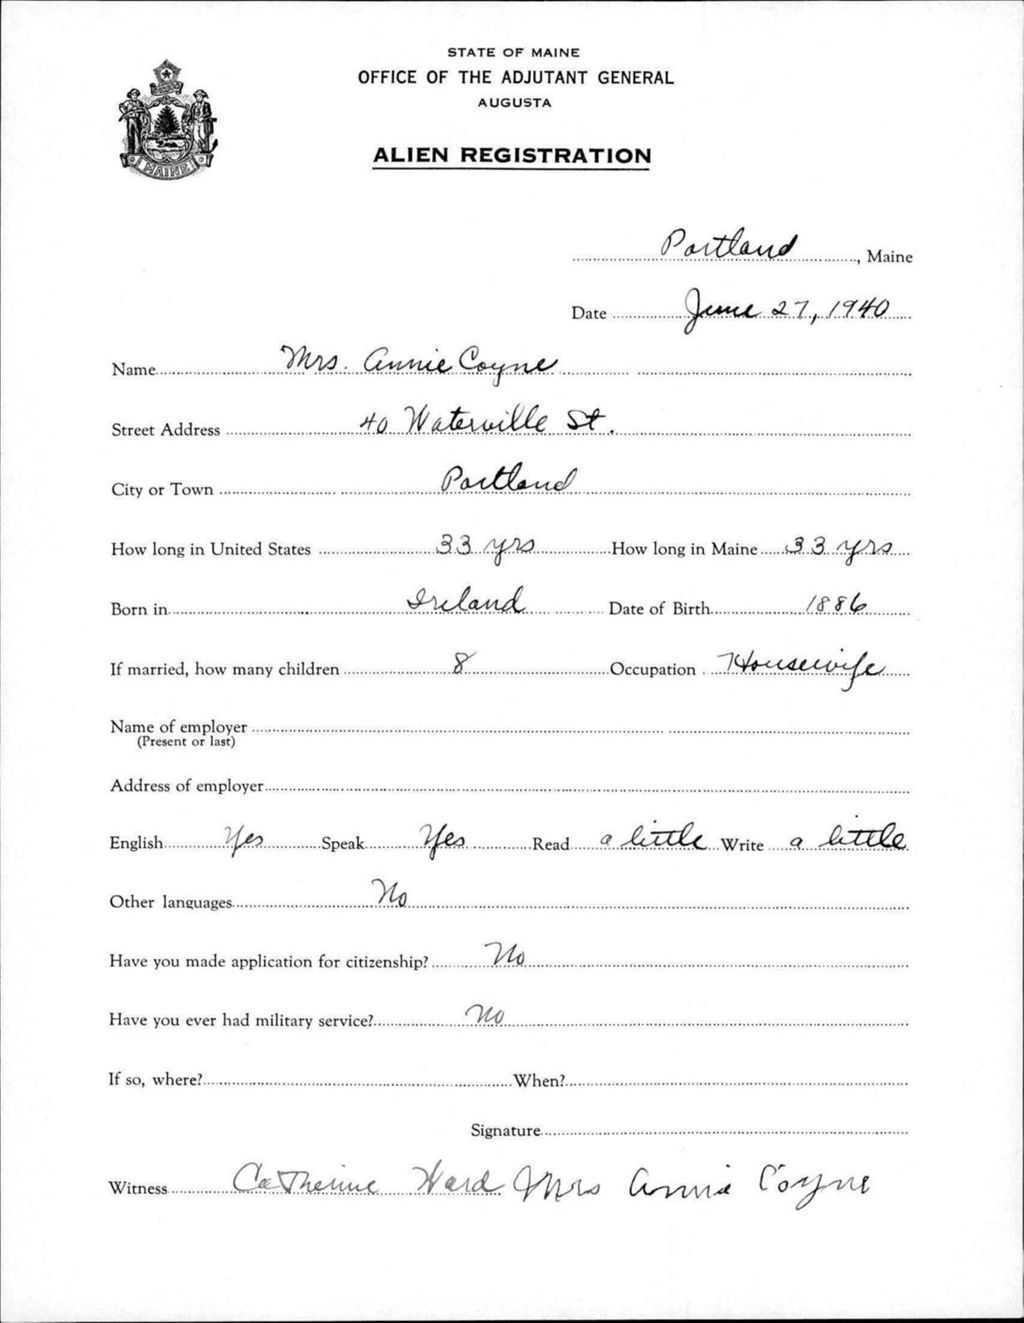 STATE OF MAINE
OFFICE OF THE ADJUTANT GENERAL
AUGUSTA
ALIEN REGISTRATION
MAINE
Portland, Maine
Date June 27, 1940
Name Mrs. Annie Coyne
Street Address 40 Waterville St.
City or Town Portland
How long in United States 33 yrs How long in Maine 33 yrs
Born in Ireland Date of Birth 1886
If married, how many children 8 Occupation Housewife
Name of employer
(Present or last)
Address of employer
English Yes Speak Yes Read a little Write a little
Other languages No
Have you made application for citizenship? No
Have you ever had military service? No
If so, where? When?
Signature
Witness Catherine Ward Mrs Annie Coyne